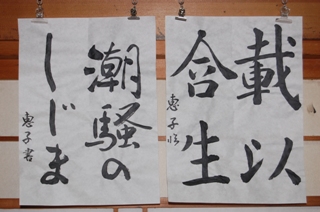 載以
含生
恵子臨
潮騒の
しじま
恵子書